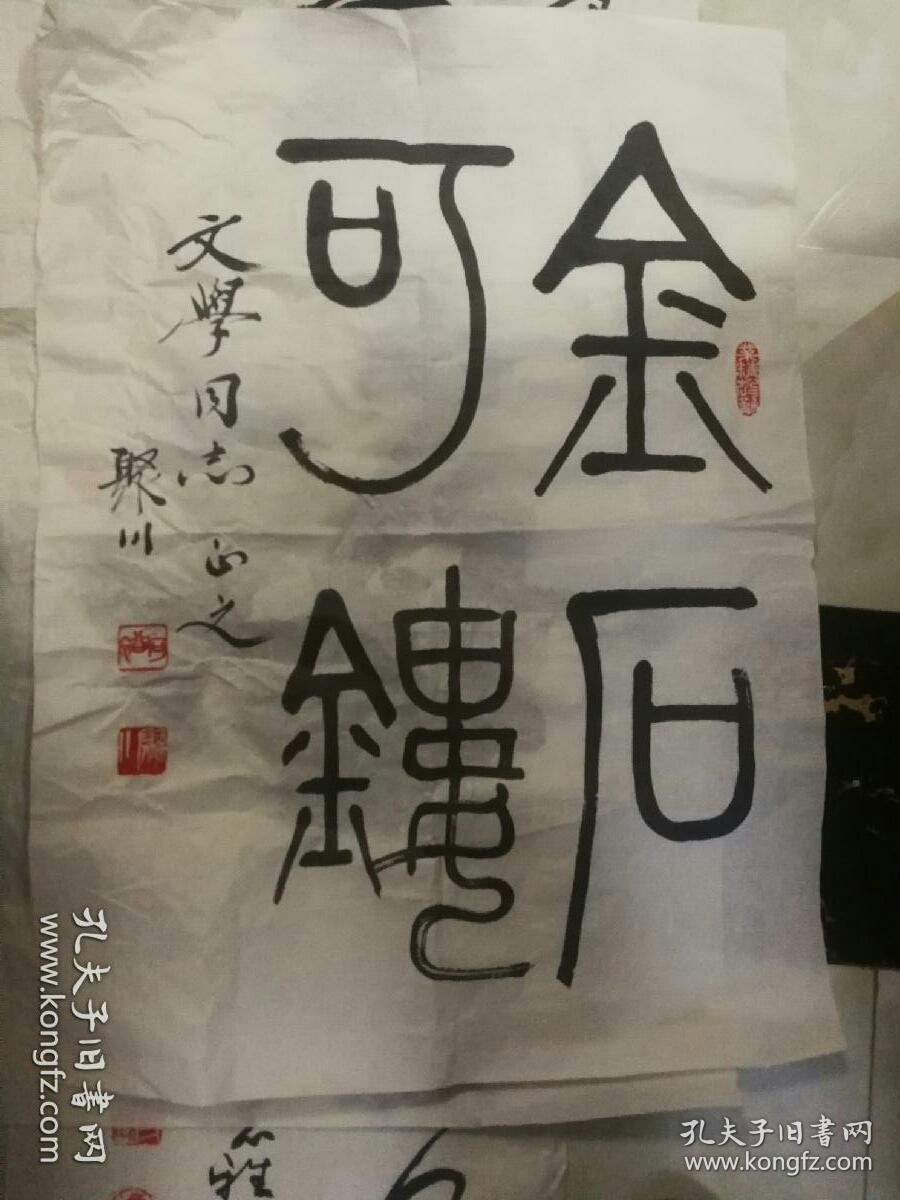 金石
可鏤
文學同志正之
聚川
孔夫子旧书网
www.kongfz.com
孔夫子旧书网
www.kongfz.com